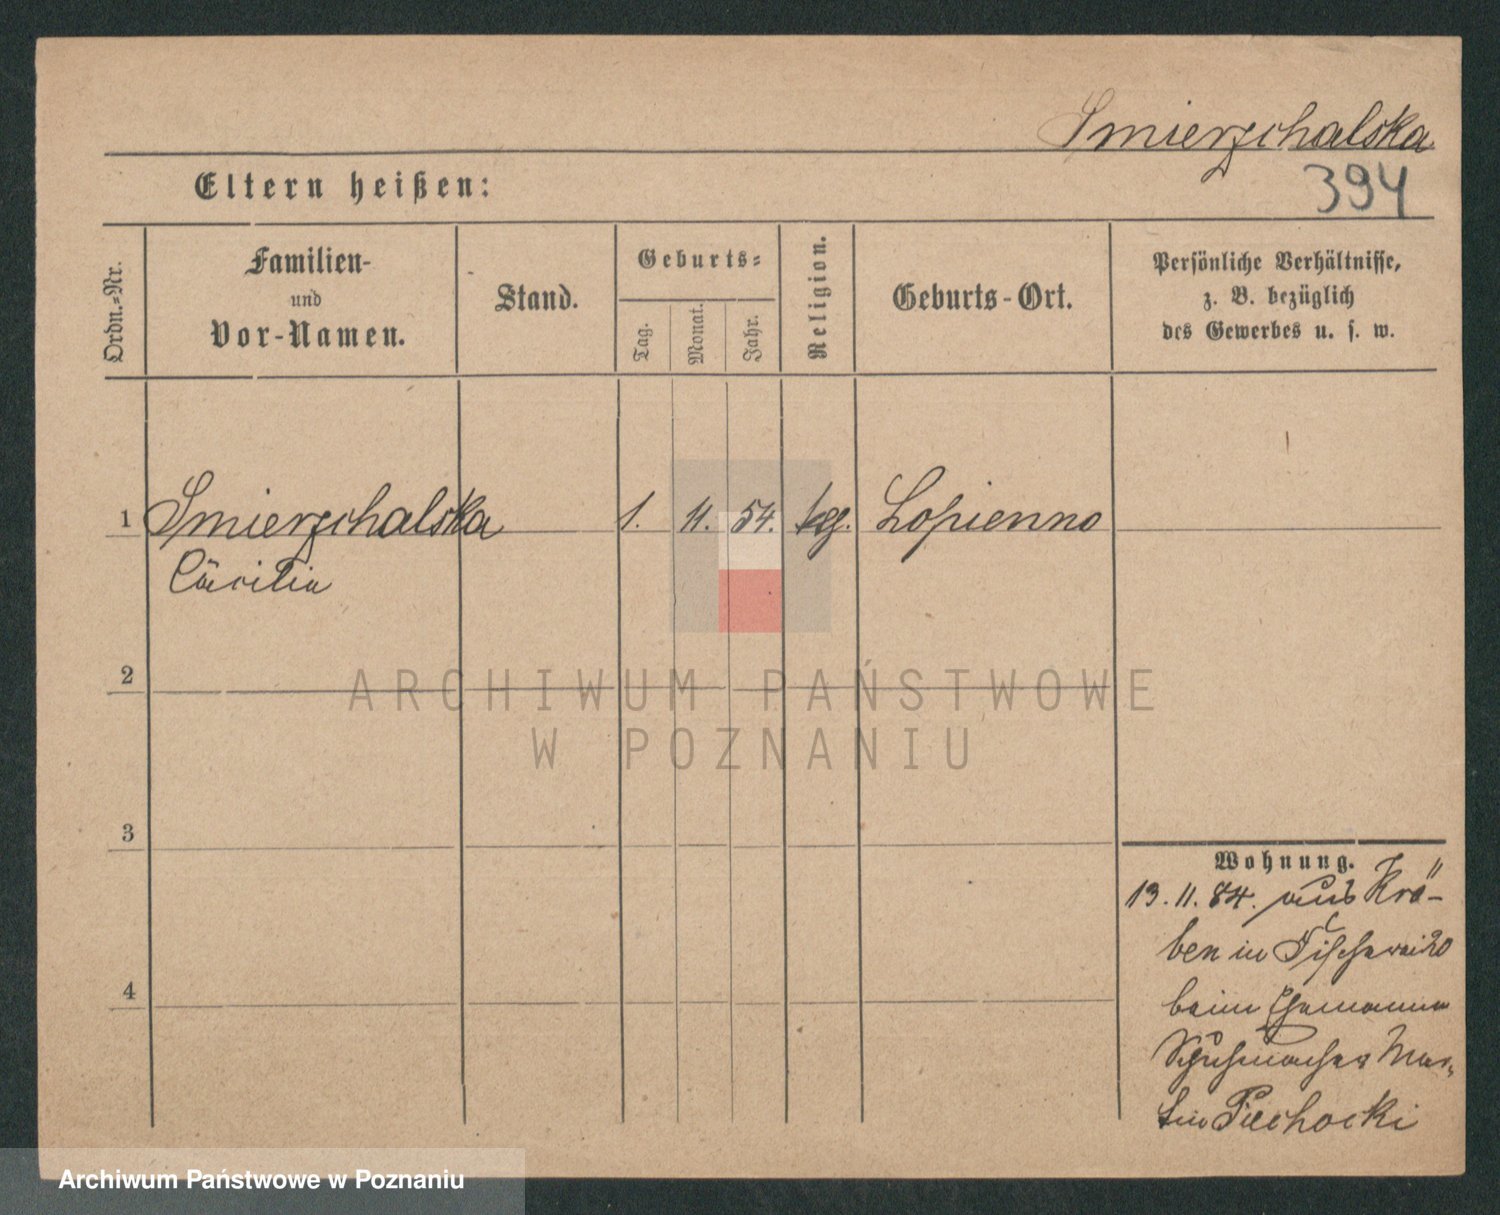 Smierzchalska
394
Eltern heißen:
Ordn.-Nr.
Familien-
und
Vor-Namen.
Stand.
Geburts-
Tag.
Monat.
Jahr.
Religion.
Geburts-Ort.
Persönliche Verhältnisse,
z. B. bezüglich
des Gewerbes u. s. w.
1 Smierzchalska 1. 11. 54. Lopienno
Cäcilia
2
ARCHIWUM PAŃSTWOWE
W POZNANIU
3
Wohnung.
13. 11. 84. aus Krö-
ben in
4
beim Ehemann
Schuhmacher Mar-
tin Piechocki
Archiwum Państwowe w Poznaniu